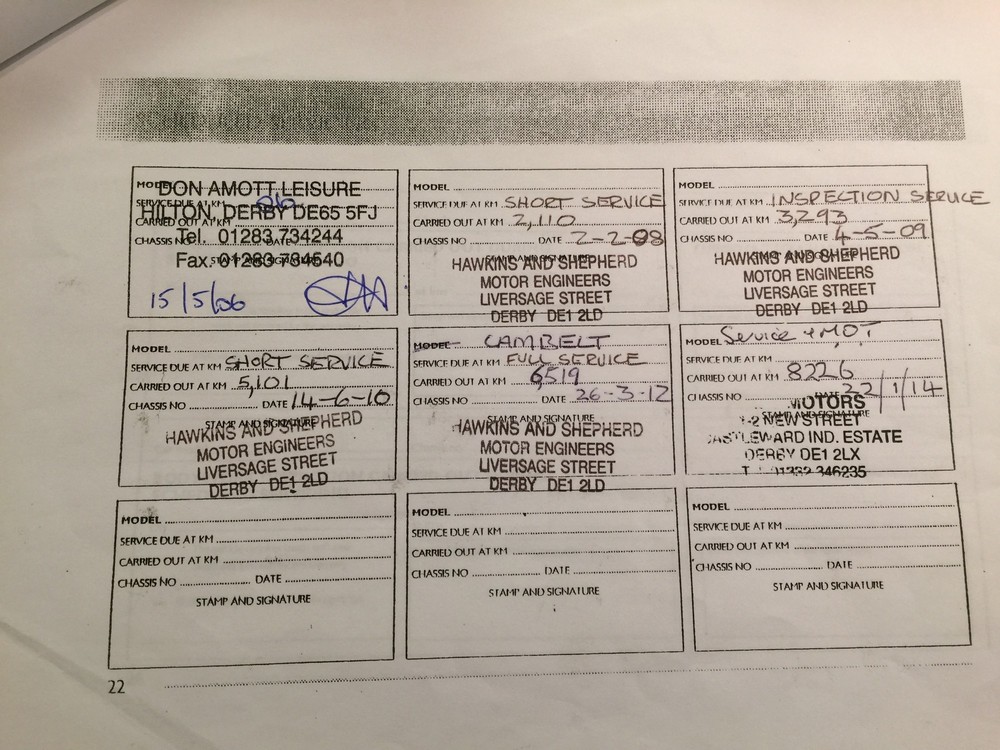 MODEL
DON AMOTT LEISURE
SERVICE DUE AT KM
HILTON, DERBY DE65 5FJ
CARRIED OUT AT KM
CHASSIS NO DATE
Tel. 01283 734244
STAMP AND SIGNATURE
Fax. 01283 734540
15/5/06
MODEL
SERVICE DUE AT KM SHORT SERVICE
CARRIED OUT AT KM 2,110
CHASSIS NO DATE 2-2-08
STAMP AND SIGNATURE
HAWKINS AND SHEPHERD
MOTOR ENGINEERS
LIVERSAGE STREET
DERBY DE1 2LD
MODEL
SERVICE DUE AT KM INSPECTION SERVICE
CARRIED OUT AT KM 3,293
CHASSIS NO DATE 4-5-09
STAMP AND SIGNATURE
HAWKINS AND SHEPHERD
MOTOR ENGINEERS
LIVERSAGE STREET
DERBY DE1 2LD
MODEL
SERVICE DUE AT KM SHORT SERVICE
CARRIED OUT AT KM 5,101
CHASSIS NO DATE 14-6-10
STAMP AND SIGNATURE
HAWKINS AND SHEPHERD
MOTOR ENGINEERS
LIVERSAGE STREET
DERBY DE1 2LD
MODEL CAMBELT
SERVICE DUE AT KM FULL SERVICE
CARRIED OUT AT KM 6519
CHASSIS NO DATE 26-3-12
STAMP AND SIGNATURE
HAWKINS AND SHEPHERD
MOTOR ENGINEERS
LIVERSAGE STREET
DERBY DE1 2LD
MODEL Service + MOT
SERVICE DUE AT KM
CARRIED OUT AT KM 8226
CHASSIS NO DATE 22/1/14
MOTORS
STAMP AND SIGNATURE
-2 NEW STREET
ASTLEWARD IND. ESTATE
DERBY DE1 2LX
01332 346235
MODEL
SERVICE DUE AT KM
CARRIED OUT AT KM
CHASSIS NO DATE
STAMP AND SIGNATURE
MODEL
SERVICE DUE AT KM
CARRIED OUT AT KM
CHASSIS NO DATE
STAMP AND SIGNATURE
MODEL
SERVICE DUE AT KM
CARRIED OUT AT KM
CHASSIS NO DATE
STAMP AND SIGNATURE
22